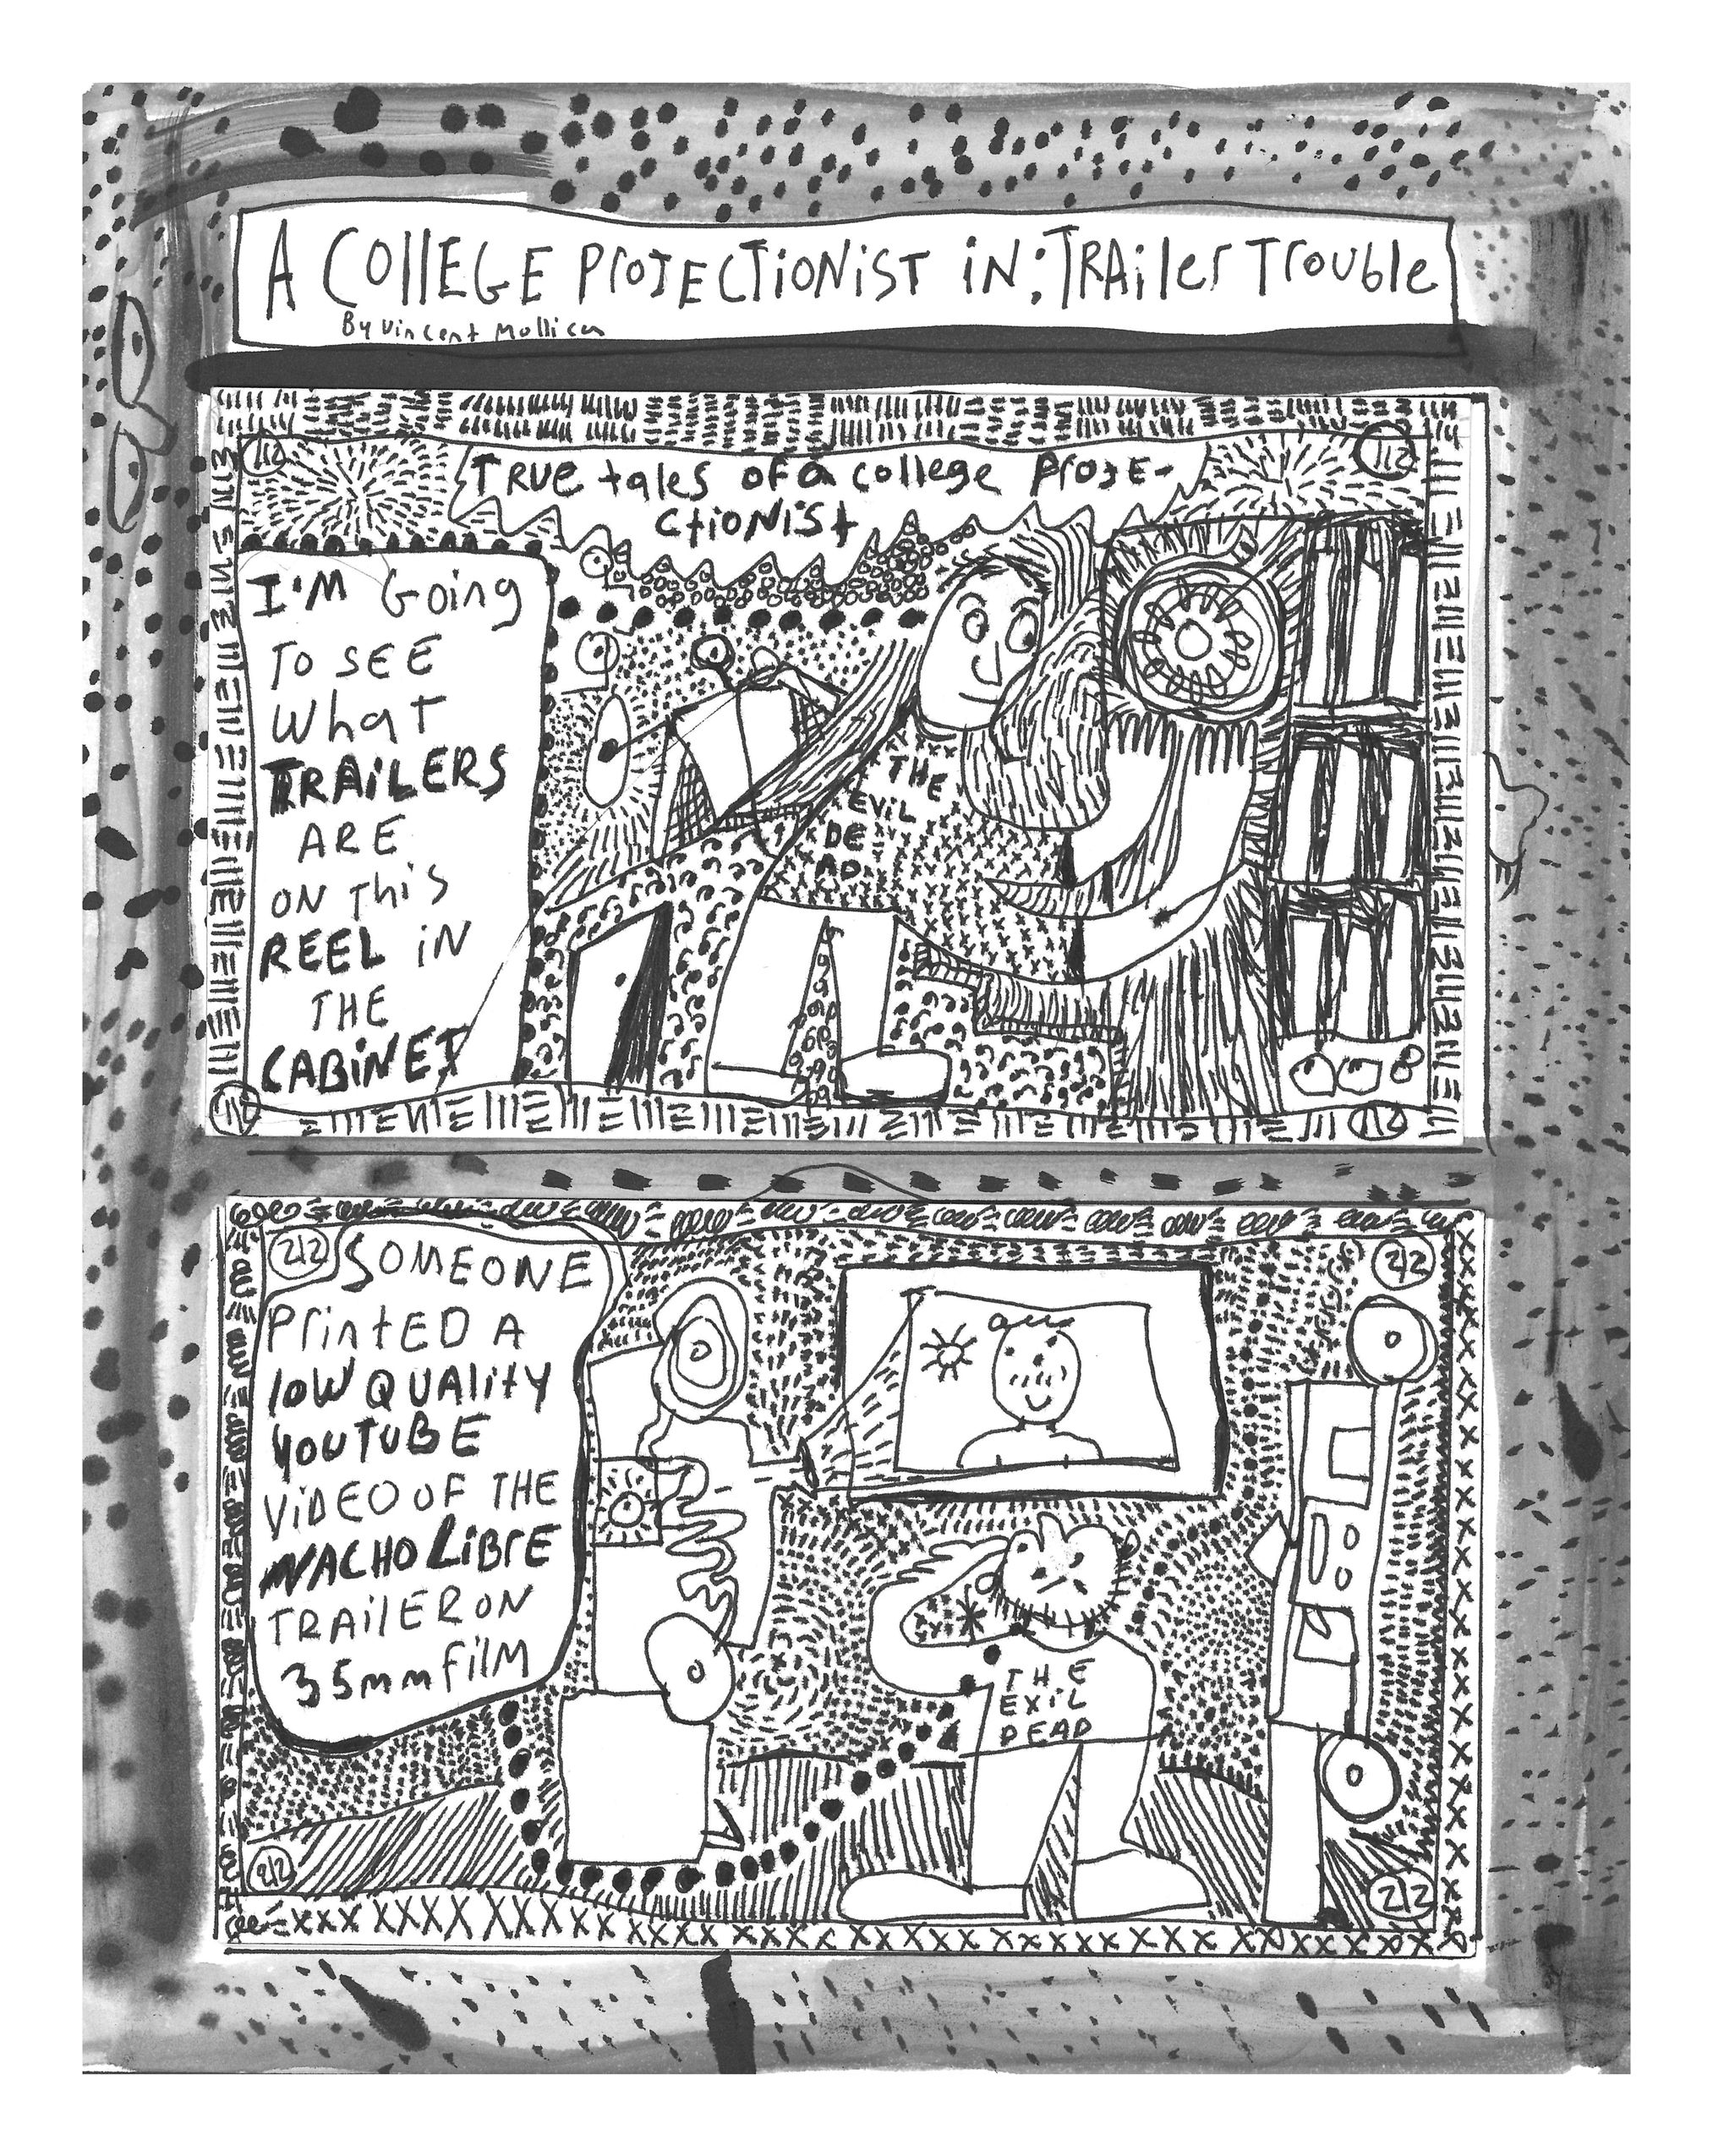 A COllEGE PROJECTiONiST iN: TRAiler Trouble
By Vincent Mollica
1|2
1|2
TRUE tales of a college PROJE-
ctioNiSt
I'M Going
TO SEE
What
TRAiLERS
ARE
ON This
REEL iN
THE
CABiNET
THE
EViL
DE
AD
1|2
1|2
2|2
SOMEONE
PrintED A
lOW QUAlitY
YOUTUBE
ViDEO OF THE
NACHO LiBrE
TRAilER ON
35mm FilM
2|2
THE
EXiL
DEAD
2|2
2|2